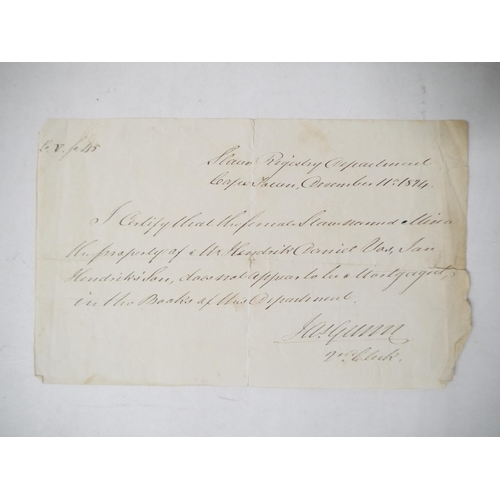 Slave Registry Department
Cape Town, November 11th 1824.
I Certify that the female Slave named Mina
the property of Mr Hendrik Daniel Vos, Jan
Hendrik's Son, does not appear to be Mortgaged,
in the Books of this Department.
Jas Gunn
Clerk.